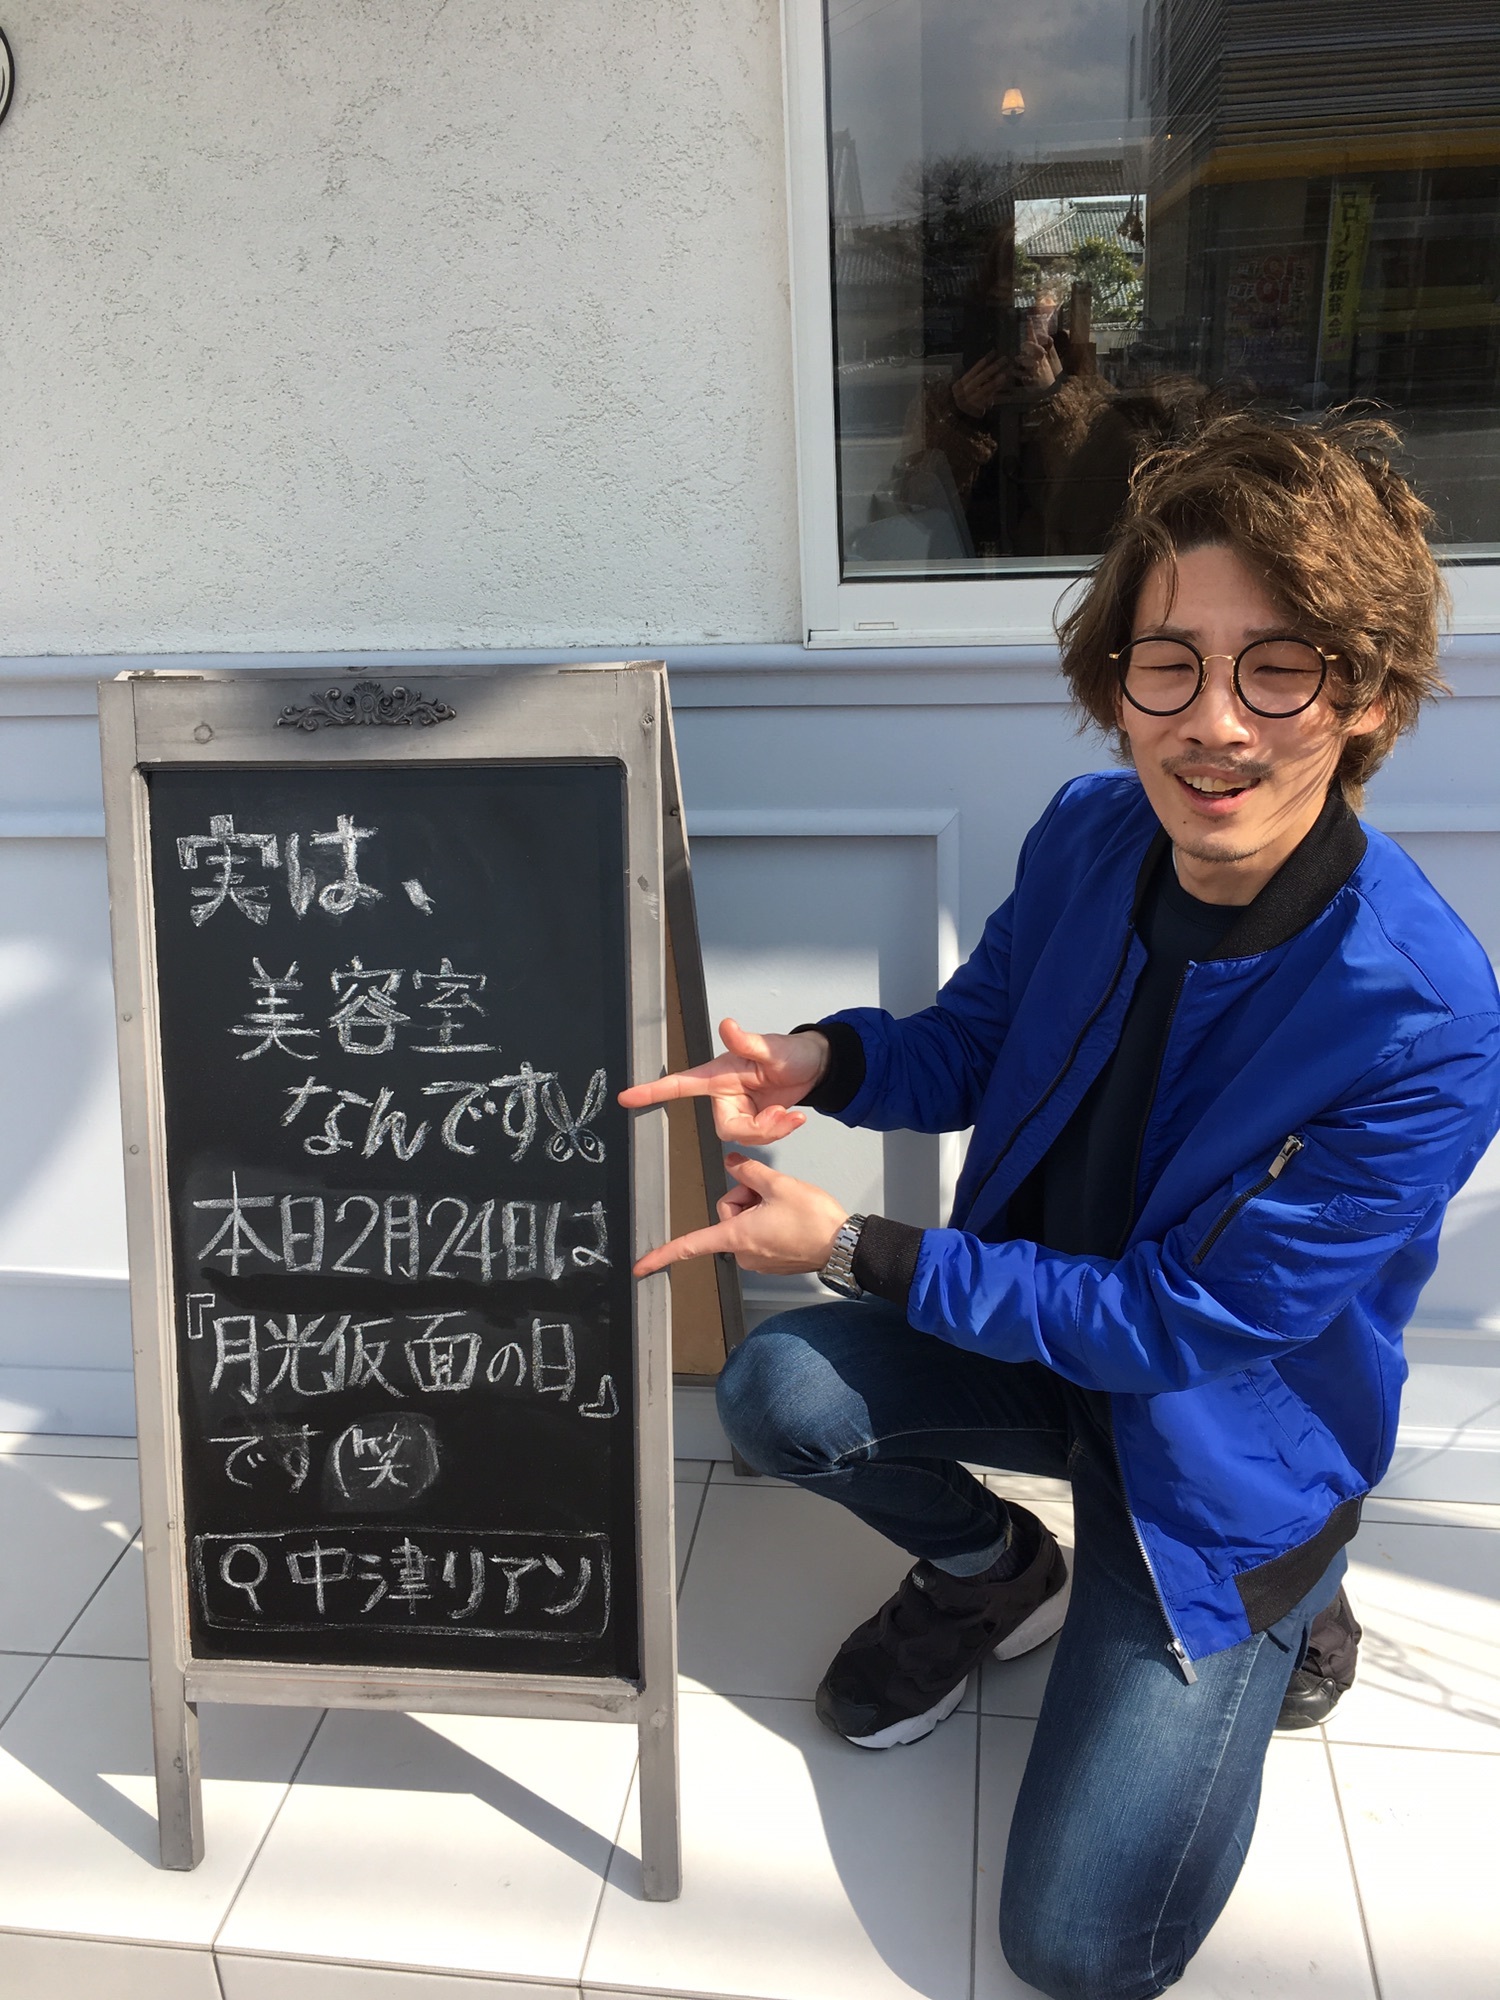 実は、
美容室
なんです
本日2月24日は
『月光仮面の日』
です(笑)
中津リアン